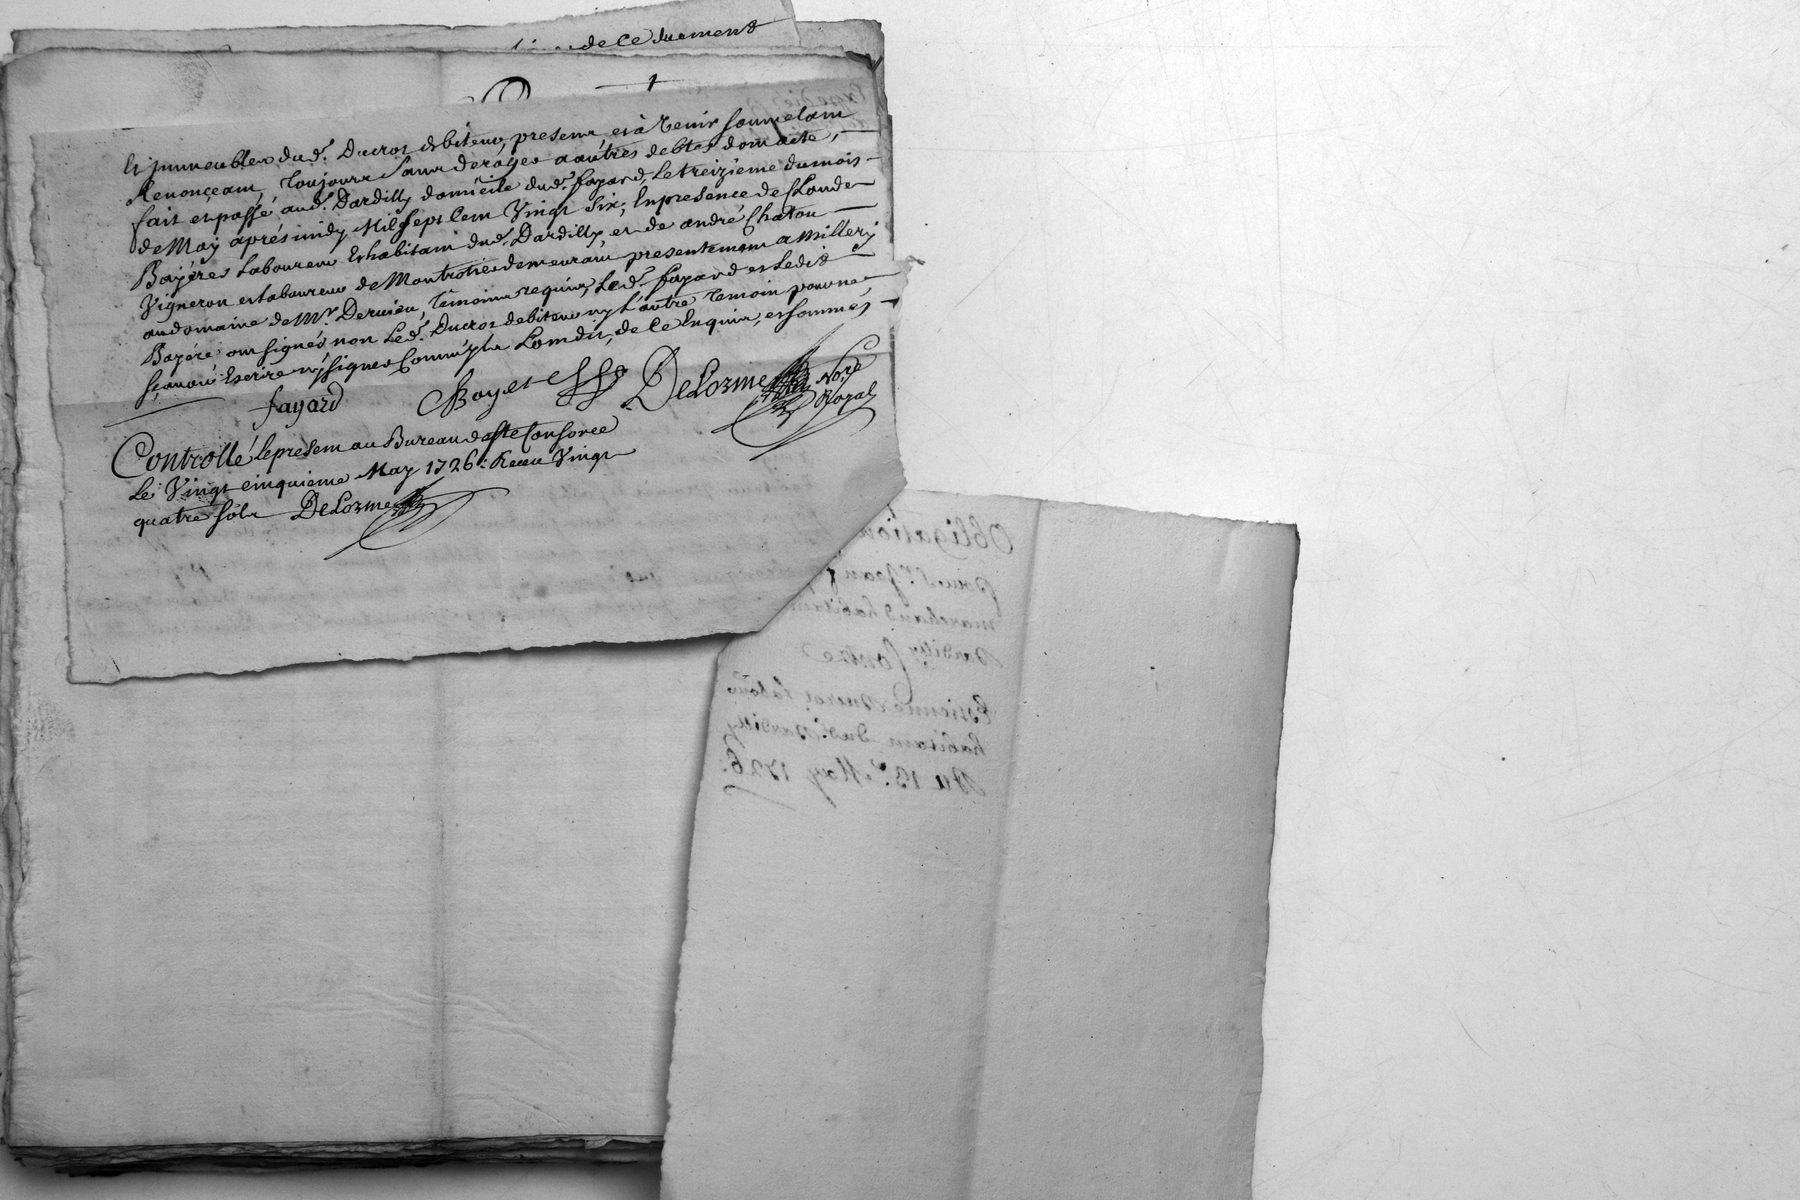 de Ce duement
Et immeubles dud. Ducros debiteur, present et à tenir soumetant
Renonçeant, toujours sans deroger a autres debtes dom acte,
fait et passé aud. Dardilly domicile dud. fayard, Le treizieme du mois
de May aprés midy Mil sept Cent Vingt Six; En presence de Claude
Bayére Laboureur Et habitant dud. Dardilly, et de andré Chatou
Vigneron et Laboureur de Montrotier demeurant presentement a Millery
au domaine de Mr. Dervieu, temoins requis, Led. fayard et Ledit
Bayére ont signés non Led. Ducros debiteur ny L'autre temoin pour ne
sçavoir Escrire ny signer Comm'ils Lon dit, de Ce Enquis, et sommés
fayard Bayet DeLorme Nore. Royal
Controllé le present au Bureau de Ste Consorce
Le Vingt cinquieme May 1726: Receu Vingt
quatre sols DeLorme
Obligation
pour Sr. Jean
marchand habitant
Dardilly Contre
Estienne Ducros Labour.
habitant dud. Dardilly
Du 13e. May 1726.